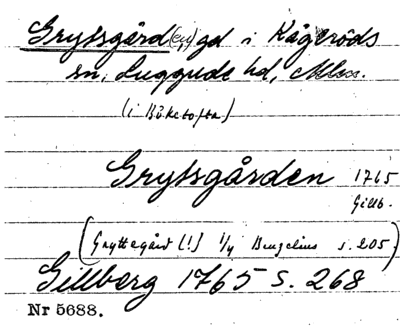 Grytsgård(en) gd i Kågeröds
sn, Luggude hd, Mlm.
(i Böketofta)
Grytsgården 1765
Gillb.
(Gryttegård (!) 1/4 Bengelius s. 205)
Gillberg 1765 s. 268
Nr 5688.